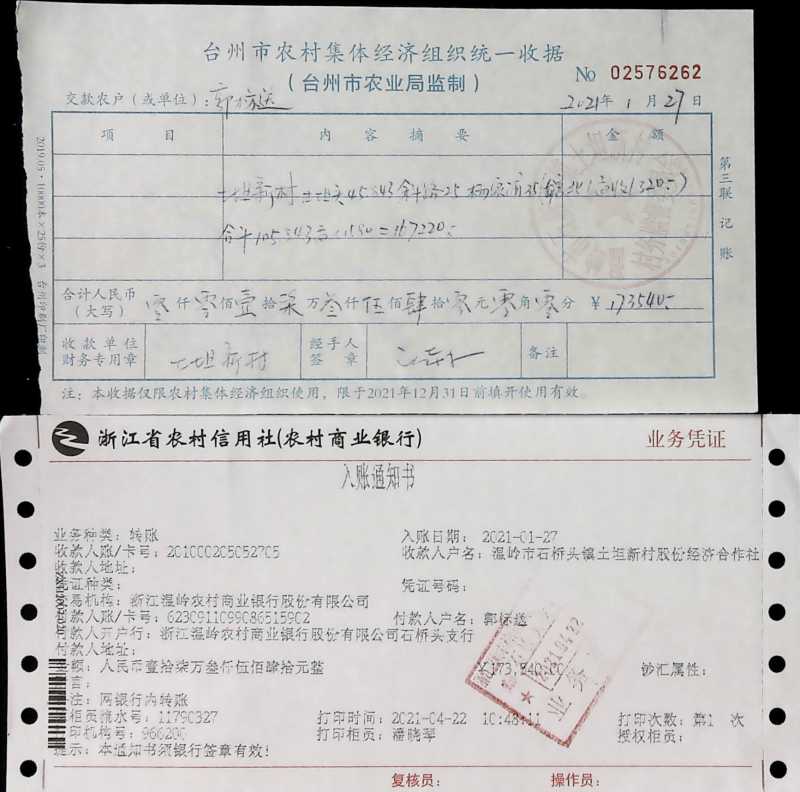 台州市农村集体经济组织统一收据
(台州市农业局监制)
No 02576262
交款农户(或单位): 郭标送
2021年 1 月 27 日
项 目 内 容 摘 要 金 额
土坦新村
合计
=167220.-
合计人民币(大写) 零仟零佰壹拾柒万叁仟伍佰肆拾零元零角零分 ¥ 173540.-
收款单位财务专用章 土坦新村 经手人签章 备注
注:本收据仅限农村集体经济组织使用,限于2021年12月31日前填开使用有效。
第三联 记账
2019.05·10000本×25份×3
浙江省农村信用社(农村商业银行)
业务凭证
入账通知书
业务种类: 转账 入账日期: 2021-01-27
收款人账/卡号: 201000205052705 收款人户名: 温岭市石桥头镇土坦新村股份经济合作社
收款人地址:
凭证种类: 凭证号码:
交易机构: 浙江温岭农村商业银行股份有限公司
付款人账/卡号: 6230911099086515902 付款人户名: 郭标送
付款人开户行: 浙江温岭农村商业银行股份有限公司石桥头支行
付款人地址:
金额: 人民币壹拾柒万叁仟伍佰肆拾元整 ¥173,540.00 钞汇属性:
言:
注: 网银行内转账
柜员流水号: 11790327 打印时间: 2021-04-22 10:48:11 打印次数: 第1 次
印机构号: 966200 打印柜员: 潘晓琴 授权柜员:
提示: 本通知书须银行签章有效!
复核员: 操作员: